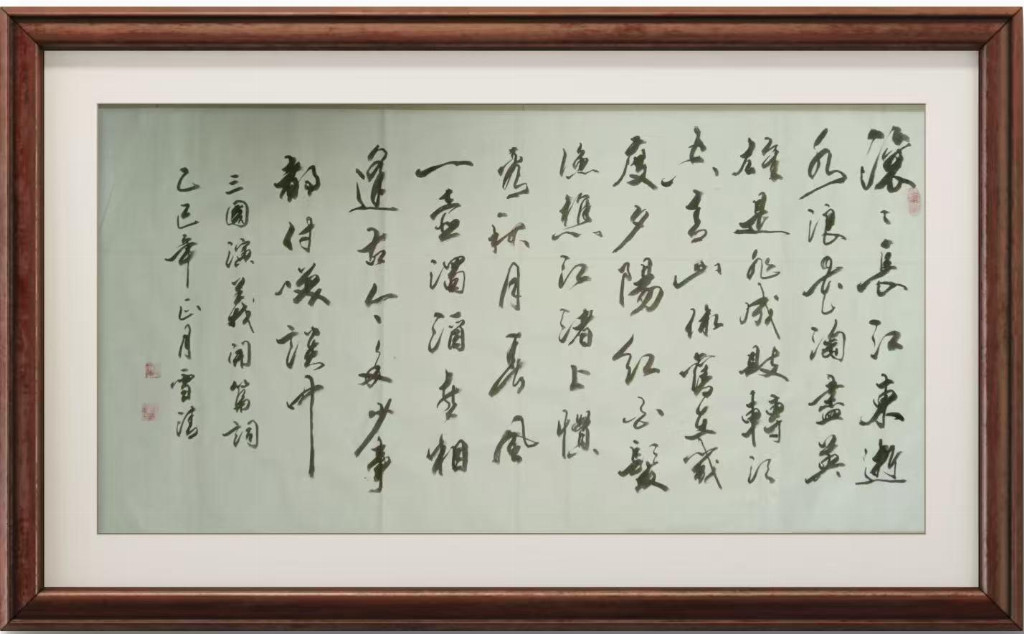 滾〻長江東逝
水浪花淘盡英
雄是非成敗轉頭
空青山依舊在幾
度夕陽紅白髮
漁樵江渚上慣
看秋月春風
一壺濁酒喜相
逢古今〻多少事
都付笑談中
三國演義開篇詞
乙巳年正月雪清